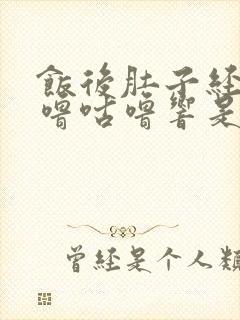 飯後肚子經
嚕咕嚕響是
曾經是个人類